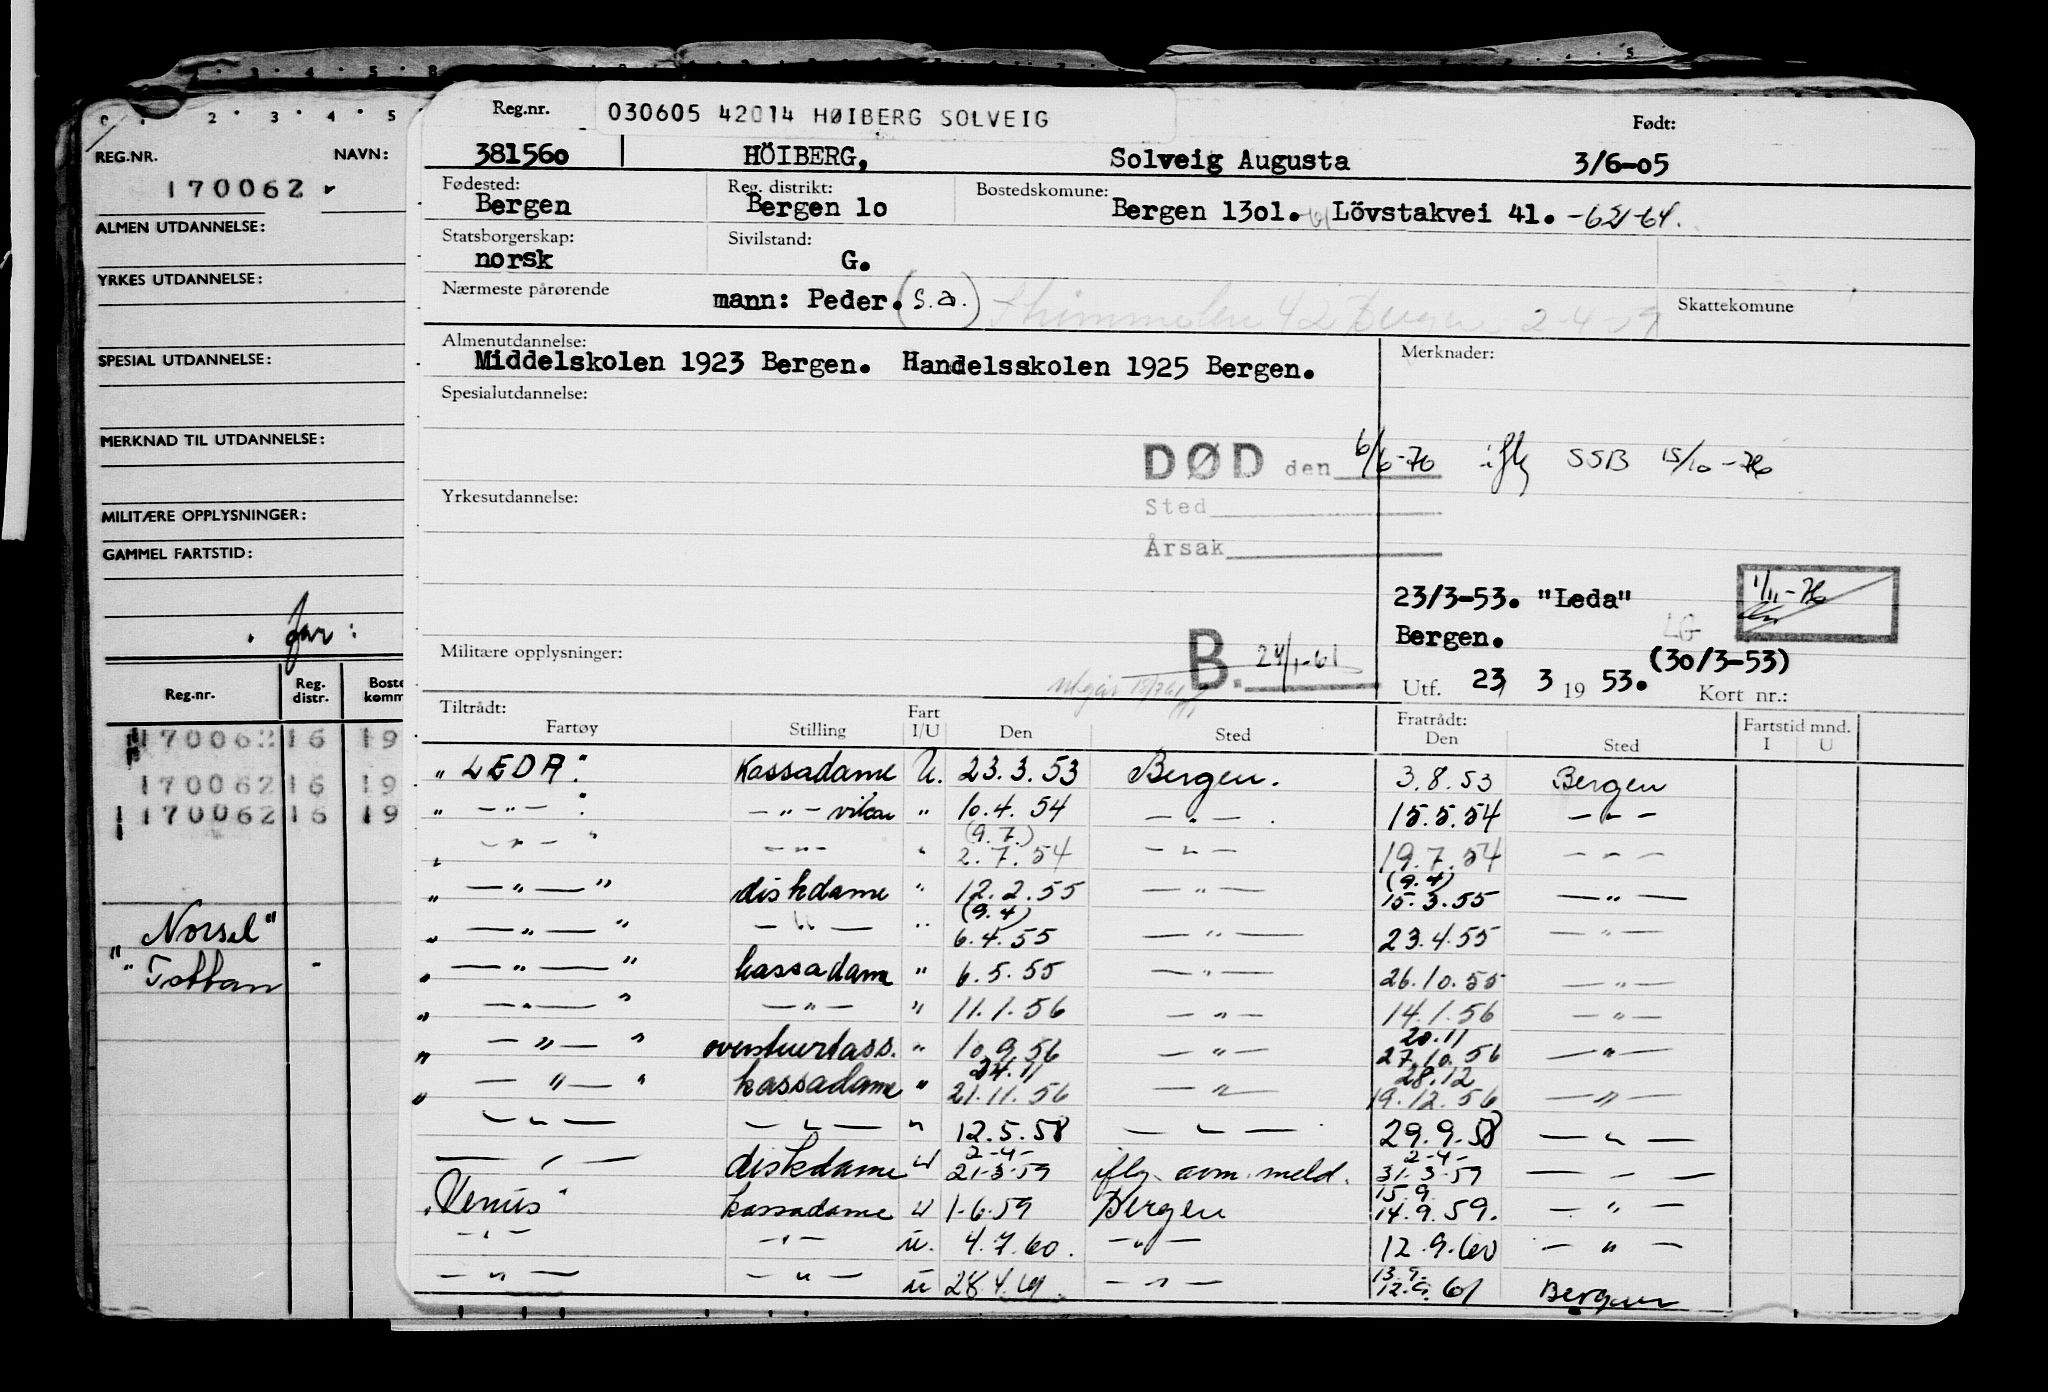 030605 42014 HØIBERG SOLVEIG
Reg.nr. Født:
381560 HÖIBERG, Solveig Augusta 3/6-05
Fødested: Reg. distrikt: Bostedskomune:
Bergen Bergen 10 Bergen 1301. Lövstakvei 41. -62-64.
Statsborgerskap: Sivilstand:
norsk G.
Nærmeste pårørende mann: Peder. (s.a.) Skattekomune
Almenutdannelse: Merknader:
Middelskolen 1923 Bergen. Handelsskolen 1925 Bergen.
Spesialutdannelse:
DØD den 6/6-76 iflg SSB 15/10-76
Yrkesutdannelse: Sted
Årsak
23/3-53. "Leda" 1/11-76
Bergen. LG
Militære opplysninger: B. 24/1-61 (30/3-53)
Utf. 23 3 19 53. Kort nr.:
Tiltrådt: Fratrådt: Fartstid mnd.
Fartøy Stilling Fart I/U Den Sted Den Sted I U
"LEDA". Kassadame U. 23.3.53 Bergen. 3.8.53 Bergen
" -"- " -"- vikar " 10.4.54 -"- 15.5.54 -"-
(9.7.)
" -"- " -"- " 2.7.54 -"- 19.7.54 -"-
(9.4)
" -"- " diskdame " 12.2.55 -"- 15.3.55 -"-
(9.4)
" -"- " -"- " 6.4.55 -"- 23.4.55 -"-
" -"- " kassadame " 6.5.55 -"- 26.10.55 -"-
" -"- " -"- " 11.1.56 -"- 14.1.56 -"-
20.11
" -"- " overstuertass. " 10.9.56 -"- 27.10.56 -"-
24.11 28.12
" -"- " kassadame " 21.11.56 -"- 19.12.56 -"-
-"- -"- " 12.5.58 -"- 29.9.58 -"-
2-4- 2-4-
-"- diskdame U 21-3-59 iflg. avm. meld. 31-3-59 -"-
15.9.
"Venus" kassadame U 1-6-59 Bergen 14.9.59. -"-
-"- -"- u. 4.7.60. -"- 12.9.60 -"-
13.9.
-"- -"- u 28.4.61. -"- 12.9.61 Bergen
REG.NR. NAVN:
170062
ALMEN UTDANNELSE:
YRKES UTDANNELSE:
SPESIAL UTDANNELSE:
MERKNAD TIL UTDANNELSE:
MILITÆRE OPPLYSNINGER:
GAMMEL FARTSTID:
far:
Reg.nr. Reg. distr. Boste komm
170062 16 19
170062 16 19
170062 16 19
"Norsel"
"Tottan